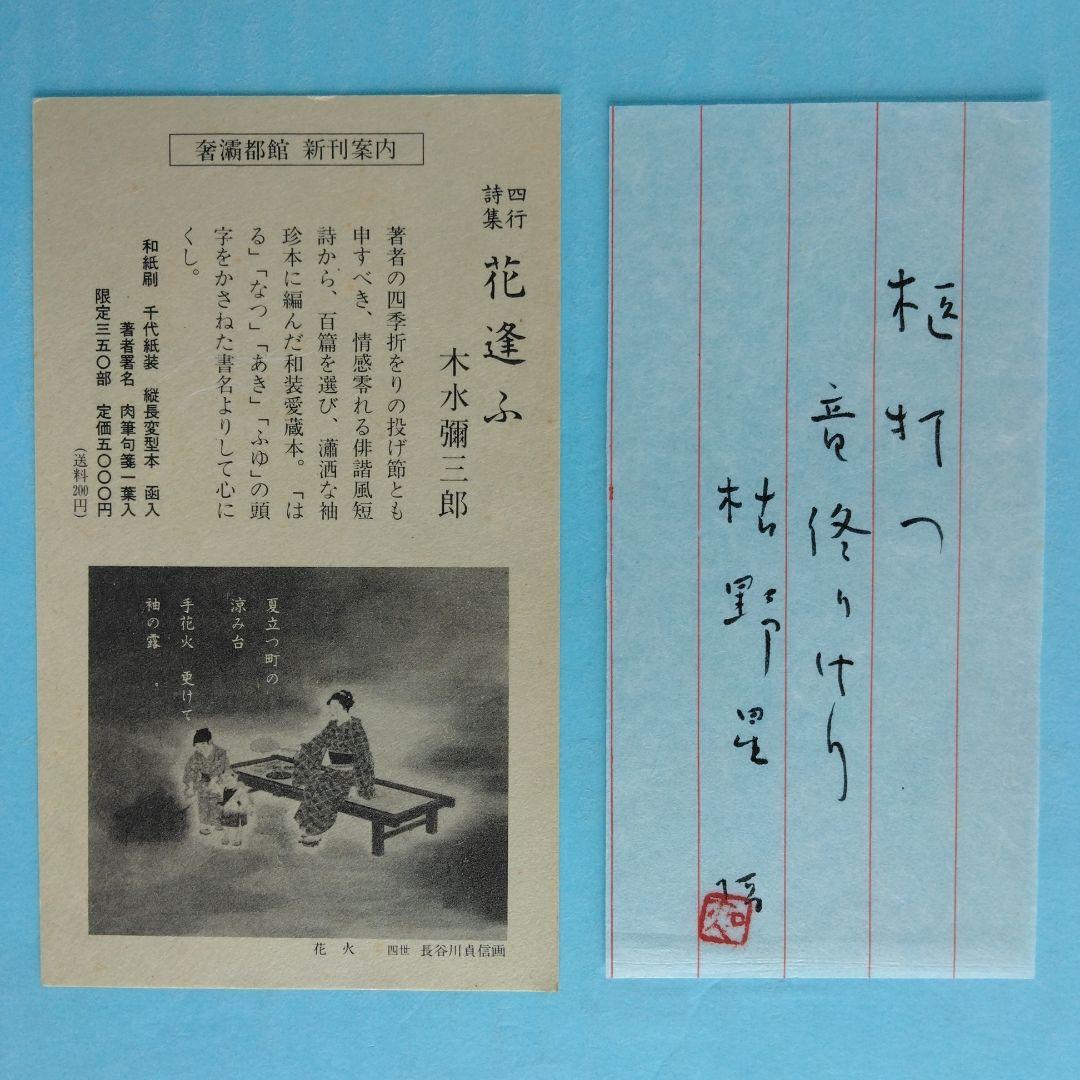 奢灞都館 新刊案内
四行詩集 花逢ふ
木水彌三郎
著者の四季折をりの投げ節とも
申すべき、情感零れる俳諧風短
詩から、百篇を選び、瀟洒な袖
珍本に編んだ和装愛蔵本。「は
る」「なつ」「あき」「ふゆ」の頭
字をかさねた書名よりして心に
くし。
和紙刷 千代紙装 縦長変型本 函入
著者署名 肉筆句箋一葉入
限定三五〇部 定価五〇〇〇円
(送料200円)
夏立つ町の
涼み台
手花火 更けて
袖の露 。
花火 四世 長谷川貞信画
柩打つ
音終りけり
枯野星